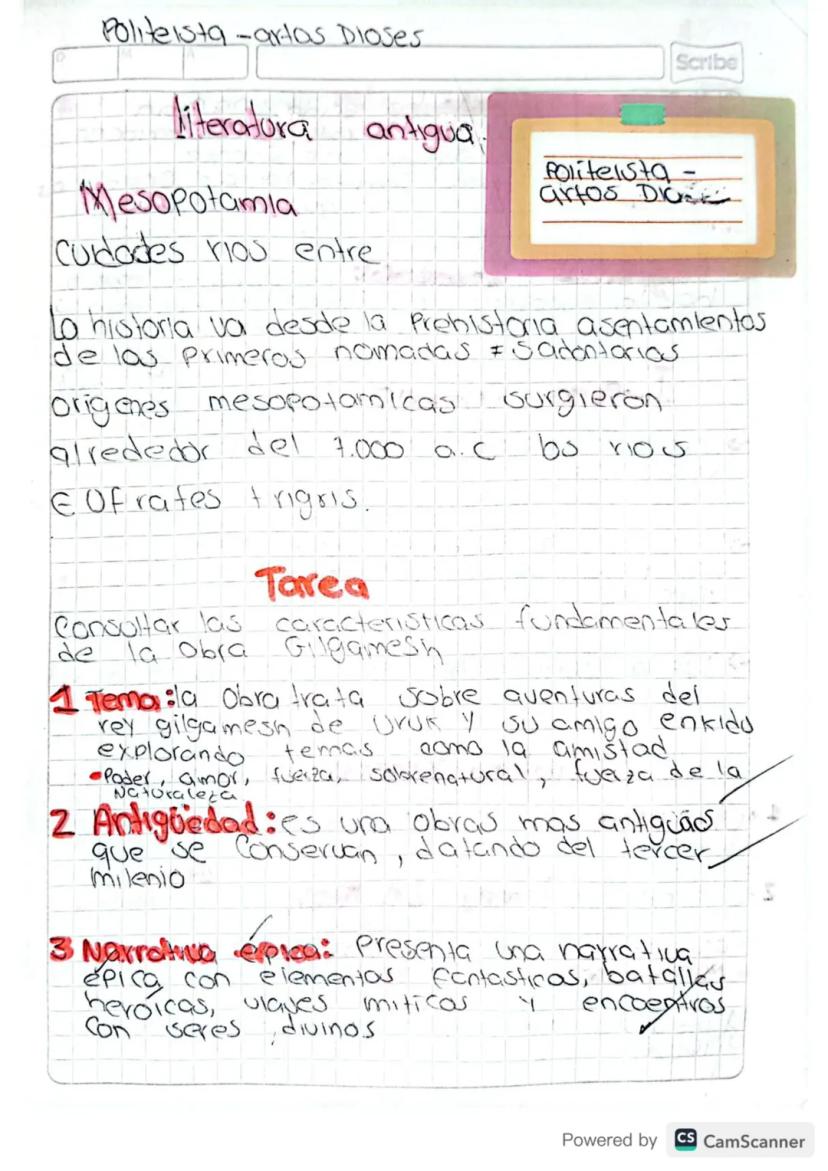 Politeista - artos Dioses
Scribe
literatura antigua
Politeista -
artos
Mesopotamia
Cuidades rios entre
La historia va desde la Prehistoria asentamientos
de las primeros nomadas ≠ sadentarias
origenes mesopotamicas surgieron
alrededor del 7.000 a.c los rios
EUfrates + rigris.
Tarea
Consultar las caracteristicas fundamentales
de la Obra Gilgamesh
1 Tema: la Obra trata sobre aventuras del
rey gilgamesh de Uruk y su amigo enkido
explorando temas como la amistad
• Poder, amor, fuerza, sobrenatural, fuerza de la
Naturaleza
2 Antigüedad: es una obras mas antiguas
que se Conservan, datando del tercer
milenio
3 Narrativa épica: Presenta una narrativa
épica con elementos fantasticos, batallas
heroícas, viajes miticos y encoentros
Con seres divinos
Powered by CS CamScanner